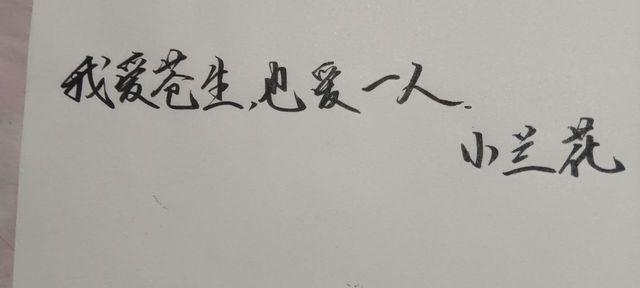 我爱苍生,也爱一人.
小兰花